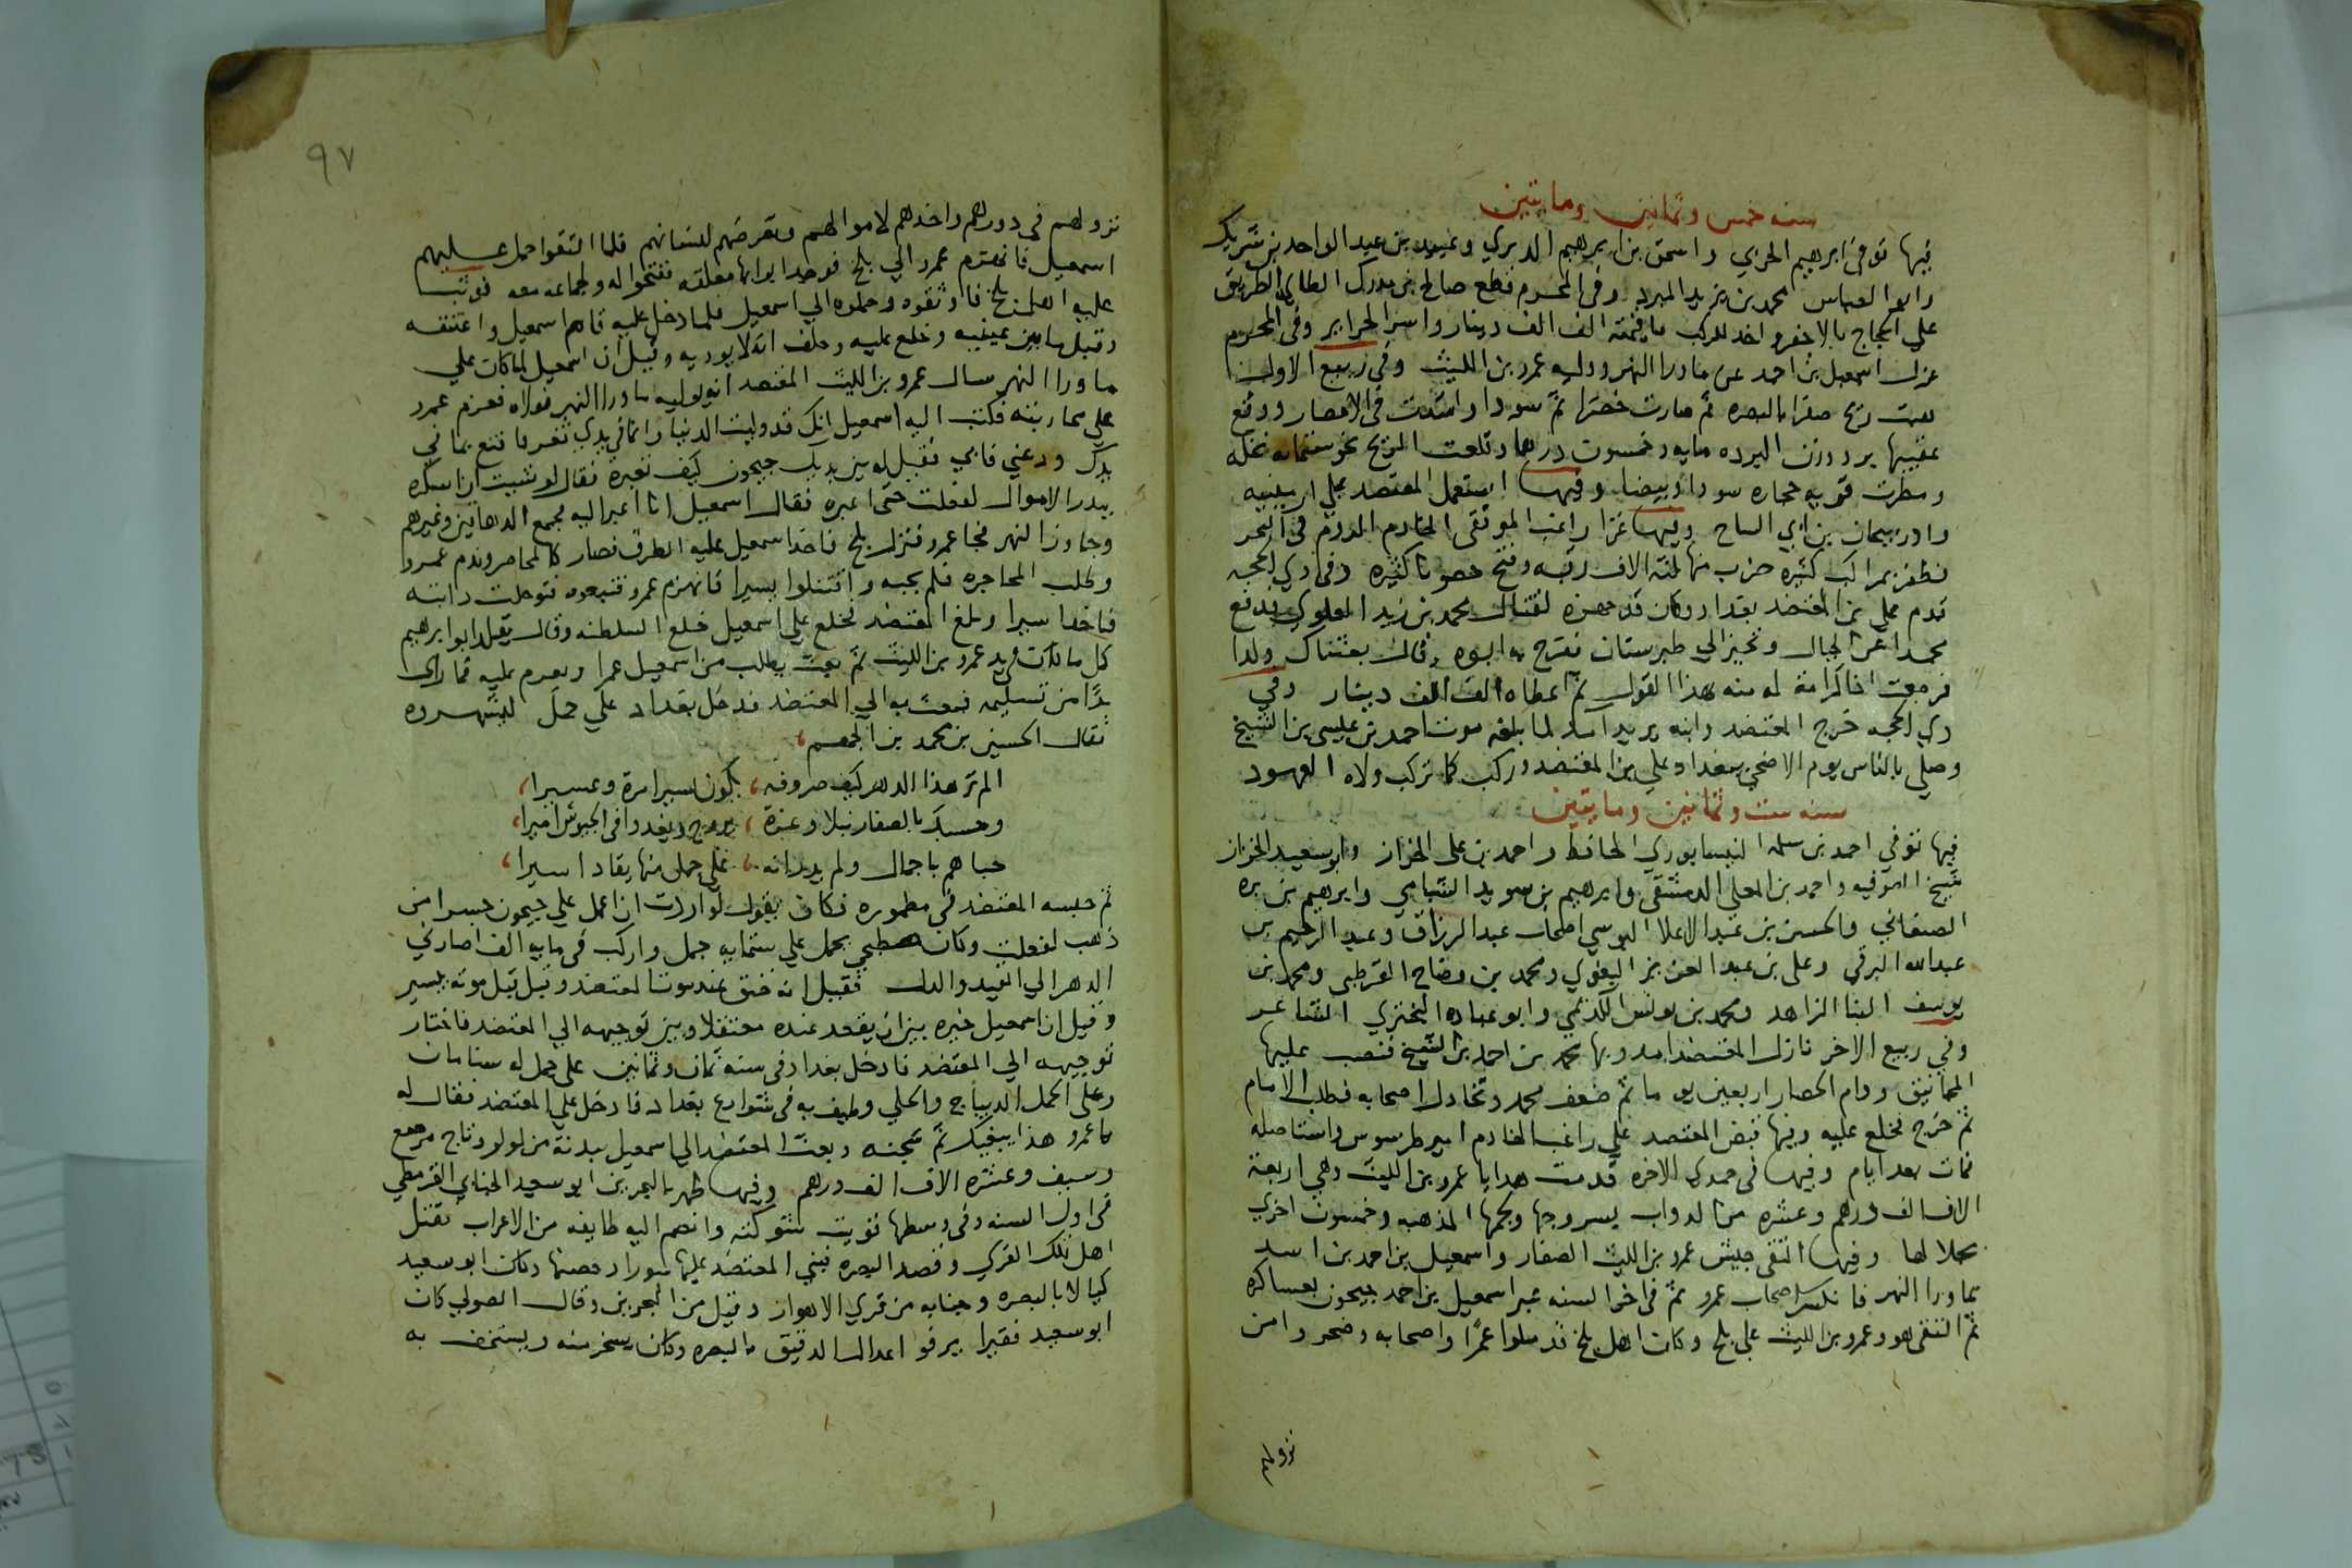 سنه خمس وثمانين ومايتين
فيها توفي ابرهيم الحربي واسحق بن ابرهيم الدبري وعبيد بن عبد الواحد بن شريك
وابو العباس محمد بن يزيد المبرد وفي المحرم قطع صالح بن مدرك الطاي الطريق
علي الحجاج بالاجفر واخد للركب ما قيمته الف الف دينار واسر الحراير وفي المحرم
عزل اسمعيل بن احمد عن ماورا النهر ووليه عمرو بن الليث وفي ربيع الاول
هبت ريح صفرا بالبصره ثم صارت خضرا ثم سودا وامتدت في الامصار ووقع
عقيبها برد وزن البرده مايه وخمسون درهما وقلعت الريح نحو ستمايه نخله
ومطرت قريه حجاره سودا وبيضا وفيها استعمل المعتضد علي ارمينيه
وادربيجان بن ابي الساج وفيها غزا راغب الموفقي الخادم الروم في البحر
فظفر بمراكب كثيره ضرب منها ثلثه الاف رقبه وفتح حصونا كثيره وفي دي الحجه
قدم علي بن المعتضد بغداد وكان قد جهزه لقتال محمد بن زيد العلوي فدفع
محمدا عن الجبال وتحيز الي طبرستان ففرح به ابوه وقال بعثناك ولدا
فرجعت اخا كرامة له منه هذا القول ثم اعطاه الف الف دينار وفي
دي الحجه خرج المعتضد وابنه يريد امد لما بلغه موت احمد بن عيسى بن الشيخ
وصلي بالناس يوم الاضحي ببغداد علي بن المعتضد وركب كما تركب ولاه العهود
سنه ست وثمانين ومايتين
فيها توفي احمد بن سلمه النيسابوري الحافظ واحمد بن علي الخزاز وابو سعيد الخزاز
شيخ الصوفيه واحمد بن المعلي الدمشقي وابرهيم بن سويد الشبامي وابرهيم بن بره
الصنعاني والحسن بن عبد الاعلا البوسي اصحاب عبد الرزاق وعبد الرحيم بن
عبد الله البرقي وعلي بن عبد العزيز البغوي ومحمد بن وضاح القرطبي ومحمد بن
يوسف البنا الزاهد ومحمد بن يونس الكديمي وابو عباده البحتري الشاعر
وفي ربيع الاخر نازل المعتضد امد وبها محمد بن احمد بن الشيخ فنصب عليها
المجانيق ودام الحصار اربعين يوما ثم ضعف محمد وتخادل اصحابه فطلب الامام
ثم خرج فخلع عليه وفيها قبض المعتضد علي راغب الخادم امير طرسوس واستاصله
فمات بعد ايام وفيها في جمدي الاخره قدمت هدايا عمرو بن الليث وهي اربعة
الاف الف درهم وعشره من الدواب بسروجها ولجمها المذهبه وخمسون اخري
بجلالها وفيها التقي جيش عمرو بن الليث الصفار واسمعيل بن احمد بن اسد
بماورا النهر فانكسر اصحاب عمرو ثم في اخر السنه عبر اسمعيل بن احمد جيحون بعساكره
ثم التقي هو وعمرو بن الليث علي بلخ وكان اهل بلخ قد ملوا عمرا واصحابه وضجروا من
نزولهم
٩٧
نزولهم في دورهم واخدهم لاموالهم وتعرضهم لنسائهم فلما التقوا حمل عليهم
اسمعيل فانهزم عمرو الي بلخ فوجد ابوابها مغلقه ففتحوا له ولجماعه معه فوثب
عليه اهل بلخ فاوثقوه وحملوه الي اسمعيل فلما دخل عليه قام اسمعيل واعتنقه
وقبل ما بين عينيه وخلع عليه وحلف انه لا يوديه وقيل ان اسمعيل لما كان علي
ماورا النهر سال عمرو بن الليث المعتضد ان يوليه ماورا النهر فولاه فعزم عمرو
علي محاربته فكتب اليه اسمعيل انك قد وليت الدنيا وانما في يدي ثغر فاقنع بما في
يدك ودعني فابي فقيل له بين يديك جيحون كيف تعبره فقال لو شيت ان اسكره
ببدر الاموال لفعلت حتي اعبره فقال اسمعيل انا اعبر اليه فجمع الدهاقين وغيرهم
وجاوز النهر فجا عمرو فنزل بلخ فاخد اسمعيل عليه الطرق فصار كالمحاصر وندم عمرو
وطلب المحاجزه فلم يجبه واقتتلوا يسيرا فانهزم عمرو فتبعوه فتوحلت دابته
فاخد اسيرا وبلغ المعتضد فخلع علي اسمعيل خلع السلطنه وقال يقلد ابو ابرهيم
كل ما كان في يد عمرو بن الليث ثم بعث يطلب من اسمعيل عمرا ويعزم عليه فما راي
بدًا من تسليمه فبعث به الي المعتضد فدخل بغداد علي جمل ليشهروه
فقال الحسين بن محمد بن الجهم،
الم تر هذا الدهر كيف صروفه، يكون يسيرا مرة وعسيرا،
وحسبك بالصفار نبلا وعزة، يروح ويغدو في الجيوش اميرا،
حباهم باجمال ولم يدر انه، علي جمل منها يقاد اسيرا،
ثم حبسه المعتضد في مطموره فكان يقول لو اردت ان اعمل علي جيحون جسرا من
ذهب لفعلت وكان مطبخي يحمل علي ستمايه جمل واركب في مايه الف اصارني
الدهر الي القيد والدل فقيل انه خنق عند موت المعتضد وقيل قبل موته بيسير
وقيل ان اسمعيل خيره بين ان يقعد عنده معتقلا وبين توجيهه الي المعتضد فاختار
توجيهه الي المعتضد فادخل بغداد في سنه ثمان وثمانين علي جمل له سنامان
وعلي الجمل الديباج والحلي وطيف به في شوارع بغداد فادخل علي المعتضد فقال له
يا عمرو هذا ببغيك ثم سجنه وبعث المعتضد الي اسمعيل ببدنة من لولو وتاج مرصع
وسيف وعشره الاف الف درهم وفيها ظهر بالبحرين ابو سعيد الجنابي القرمطي
في اول السنه وفي وسطها قويت شوكته وانضم اليه طايفه من الاعراب فقتل
اهل تلك القري وقصد البصره فبني المعتضد عليها سورا وحصنها وكان ابو سعيد
كيالا بالبصره وجنابه من قري الاهواز وقيل من البحرين وقال الصولي كان
ابو سعيد فقيرا يرفو اعدال الدقيق بالبصره وكان يسخر منه ويستخف به